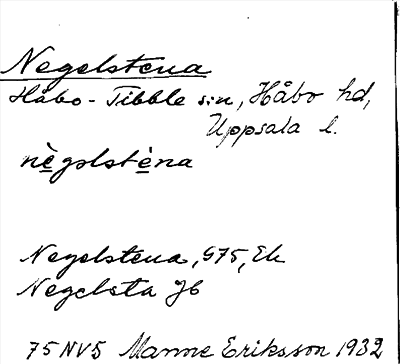 Negelstena
Håbo-Tibble sn, Håbo hd,
Uppsala l.
nègəlstèna
Negelstena, G75, Ek
Negelsta Jb
75 NV5 Manne Eriksson 1932